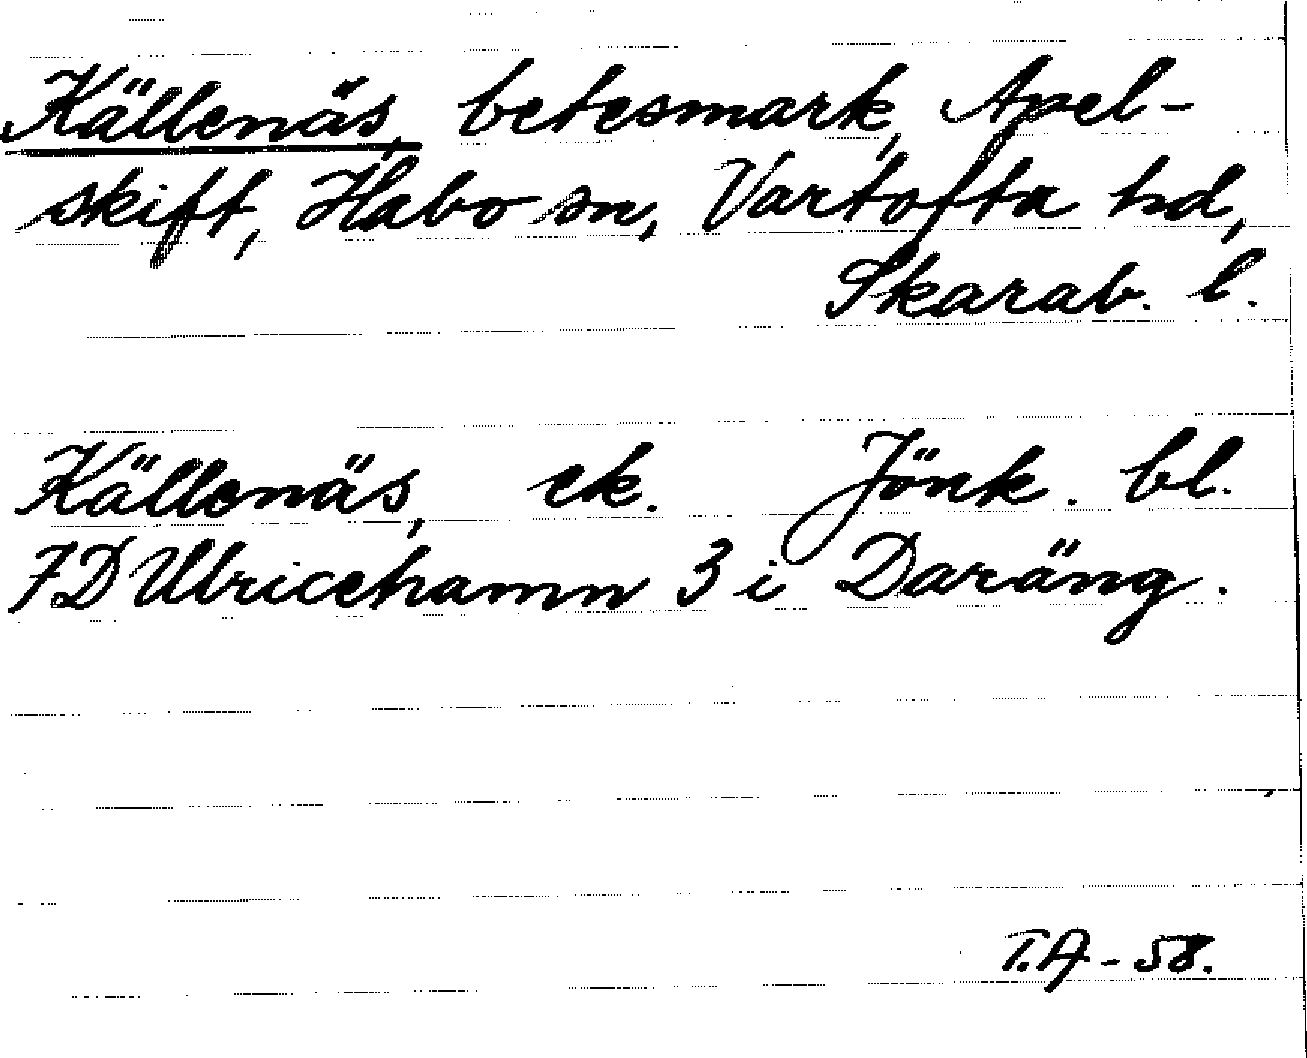 Källenäs, betesmark, Apel-
skift, Habo sn, Vartofta hd,
Skarab. l.
Källenäs, ek. Jönk. bl.
7D Ulricehamn 3 i Daräng.
T.A - 58.